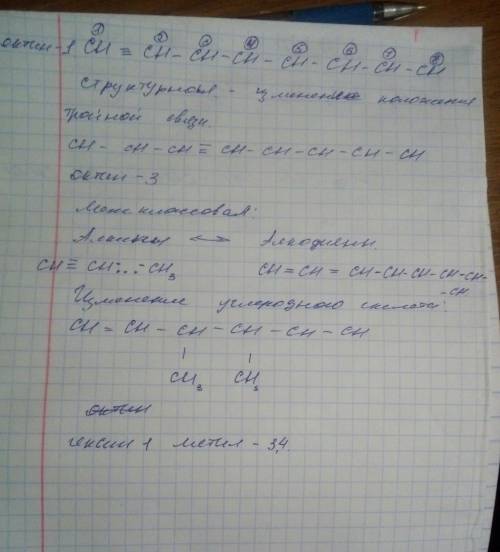 ① ② ③ ④ ⑤ ⑥ ⑦ ⑧
октин-1 CH ≡ CH - CH - CH - CH - CH - CH - CH
структурная - изменение положения
тройной связи.
CH - CH - CH ≡ CH - CH - CH - CH - CH
октин - 3
Межклассовая:
Алкины ↔ Алкодиены
CH ≡ CH ... - CH₃ CH = CH = CH - CH - CH - CH - CH -
- CH
Изменение углеродного скелета:
CH = CH - CH - CH - CH - CH
CH₃ CH₃
октин
гексин 1 метил - 3,4.